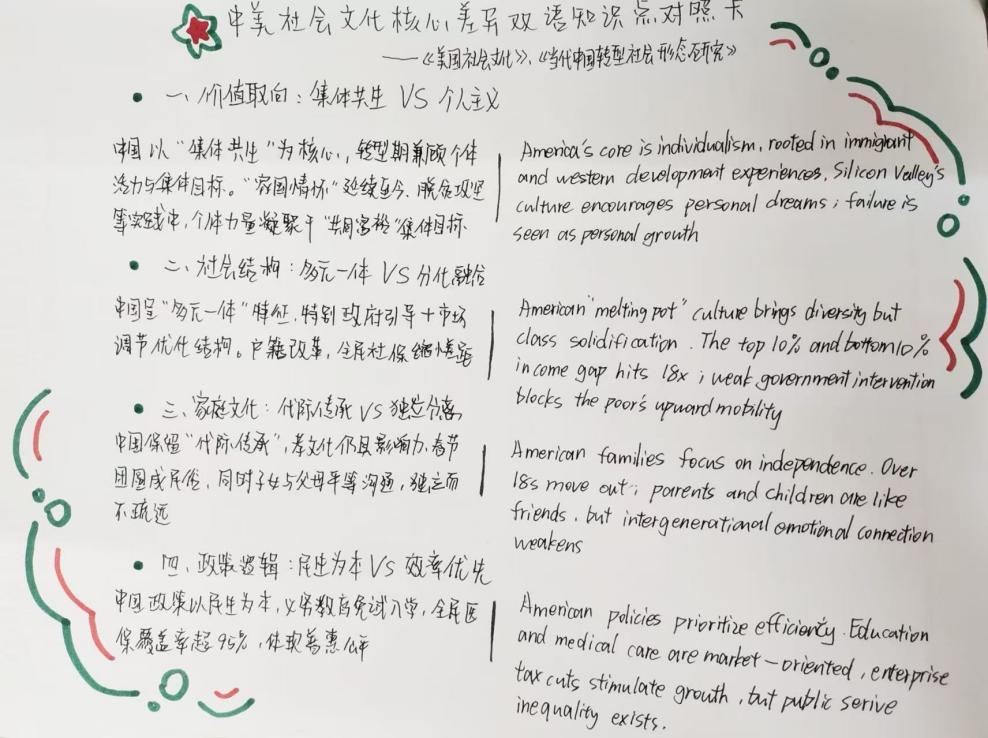 中美社会文化核心差异双语知识点对照卡
——《美国社会文化》、《当代中国转型社会形态研究》
一、价值取向：集体共生 VS 个人主义
中国以“集体共生”为核心，转型期兼顾个体
活力与集体目标。“家国情怀”延续至今、脱贫攻坚
等实践中，个体力量凝聚于“共同富裕”集体目标
America's core is individualism, rooted in immigrant
and western development experiences. Silicon Valley's
culture encourages personal dreams; failure is
seen as personal growth
二、社会结构：多元一体 VS 分化融合
中国呈“多元一体”特征，特别政府引导+市场
调节优化结构。户籍改革，全民社保缩差距
American "melting pot" culture brings diversity but
class solidification. The top 10% and bottom 10%
income gap hits 18x; weak government intervention
blocks the poor's upward mobility
三、家庭文化：代际传承 VS 独立分离
中国保留“代际传承”，孝文化仍具影响力、春节
团圆成民俗，同时子女与父母平等沟通，独立而
不疏远
American families focus on independence. Over
18s move out; parents and children are like
friends, but intergenerational emotional connection
weakens
四、政策逻辑：民生为本 VS 效率优先
中国政策以民生为本，义务教育免试入学，全民医
保覆盖率超95%，体现普惠公平
American policies prioritize efficiency. Education
and medical care are market-oriented, enterprise
tax cuts stimulate growth, but public serive
inequality exists.